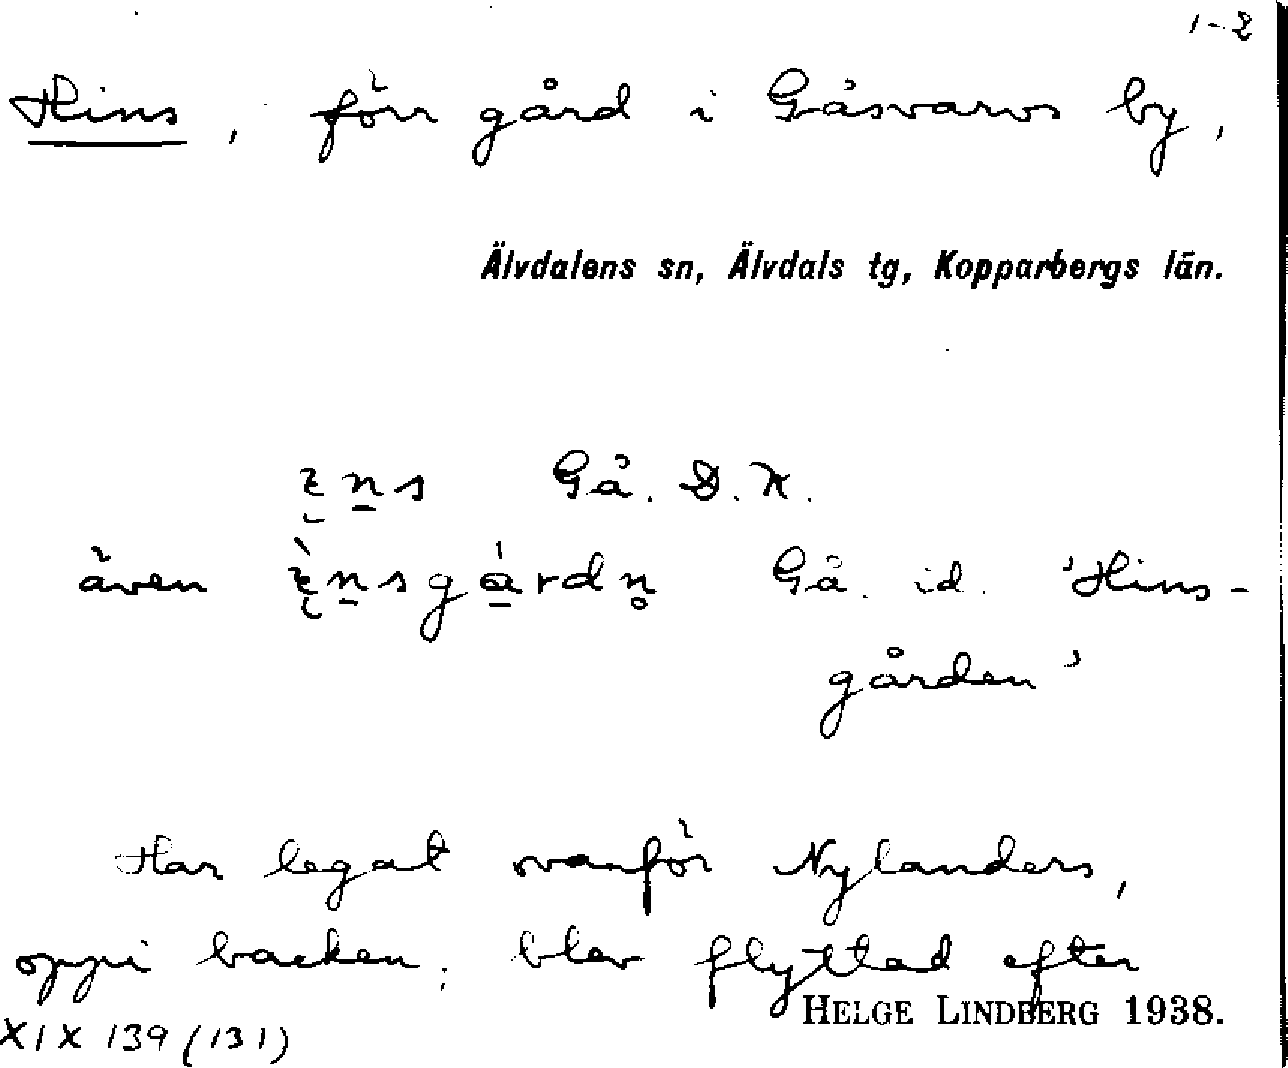 1-2
Hins, förr gård i Gåsvarvs by,
Älvdalens sn, Älvdals tg, Kopparbergs län.
Gå. D. K.
även Gå. id. 'Hins-
gården'
Har legat ovanför Nylanders,
oppi backen; blev flyttad efter
HELGE LINDBERG 1938.
XIX 139 (131)